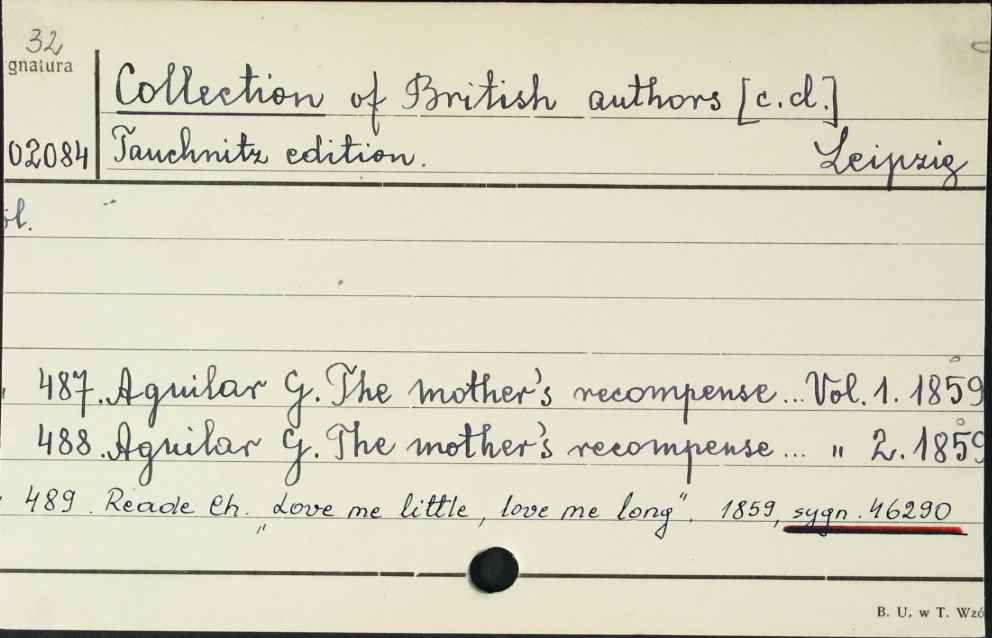 32
gnatura
Collection of British authors [c.d.]
02084 Tauchnitz edition. Leipzig
ol.
487. Aguilar G. The mother's recompense... Vol. 1. 1859
488. Aguilar G. The mother's recompense... " 2. 1859
489. Reade Ch. „Love me little, love me long". 1859, sygn. 46290
B. U. w T. Wzó